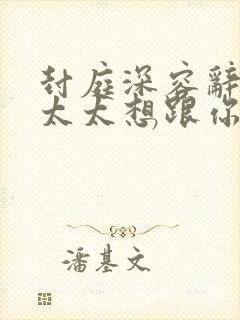 封庭深容辭
太太想跟你
潘基文